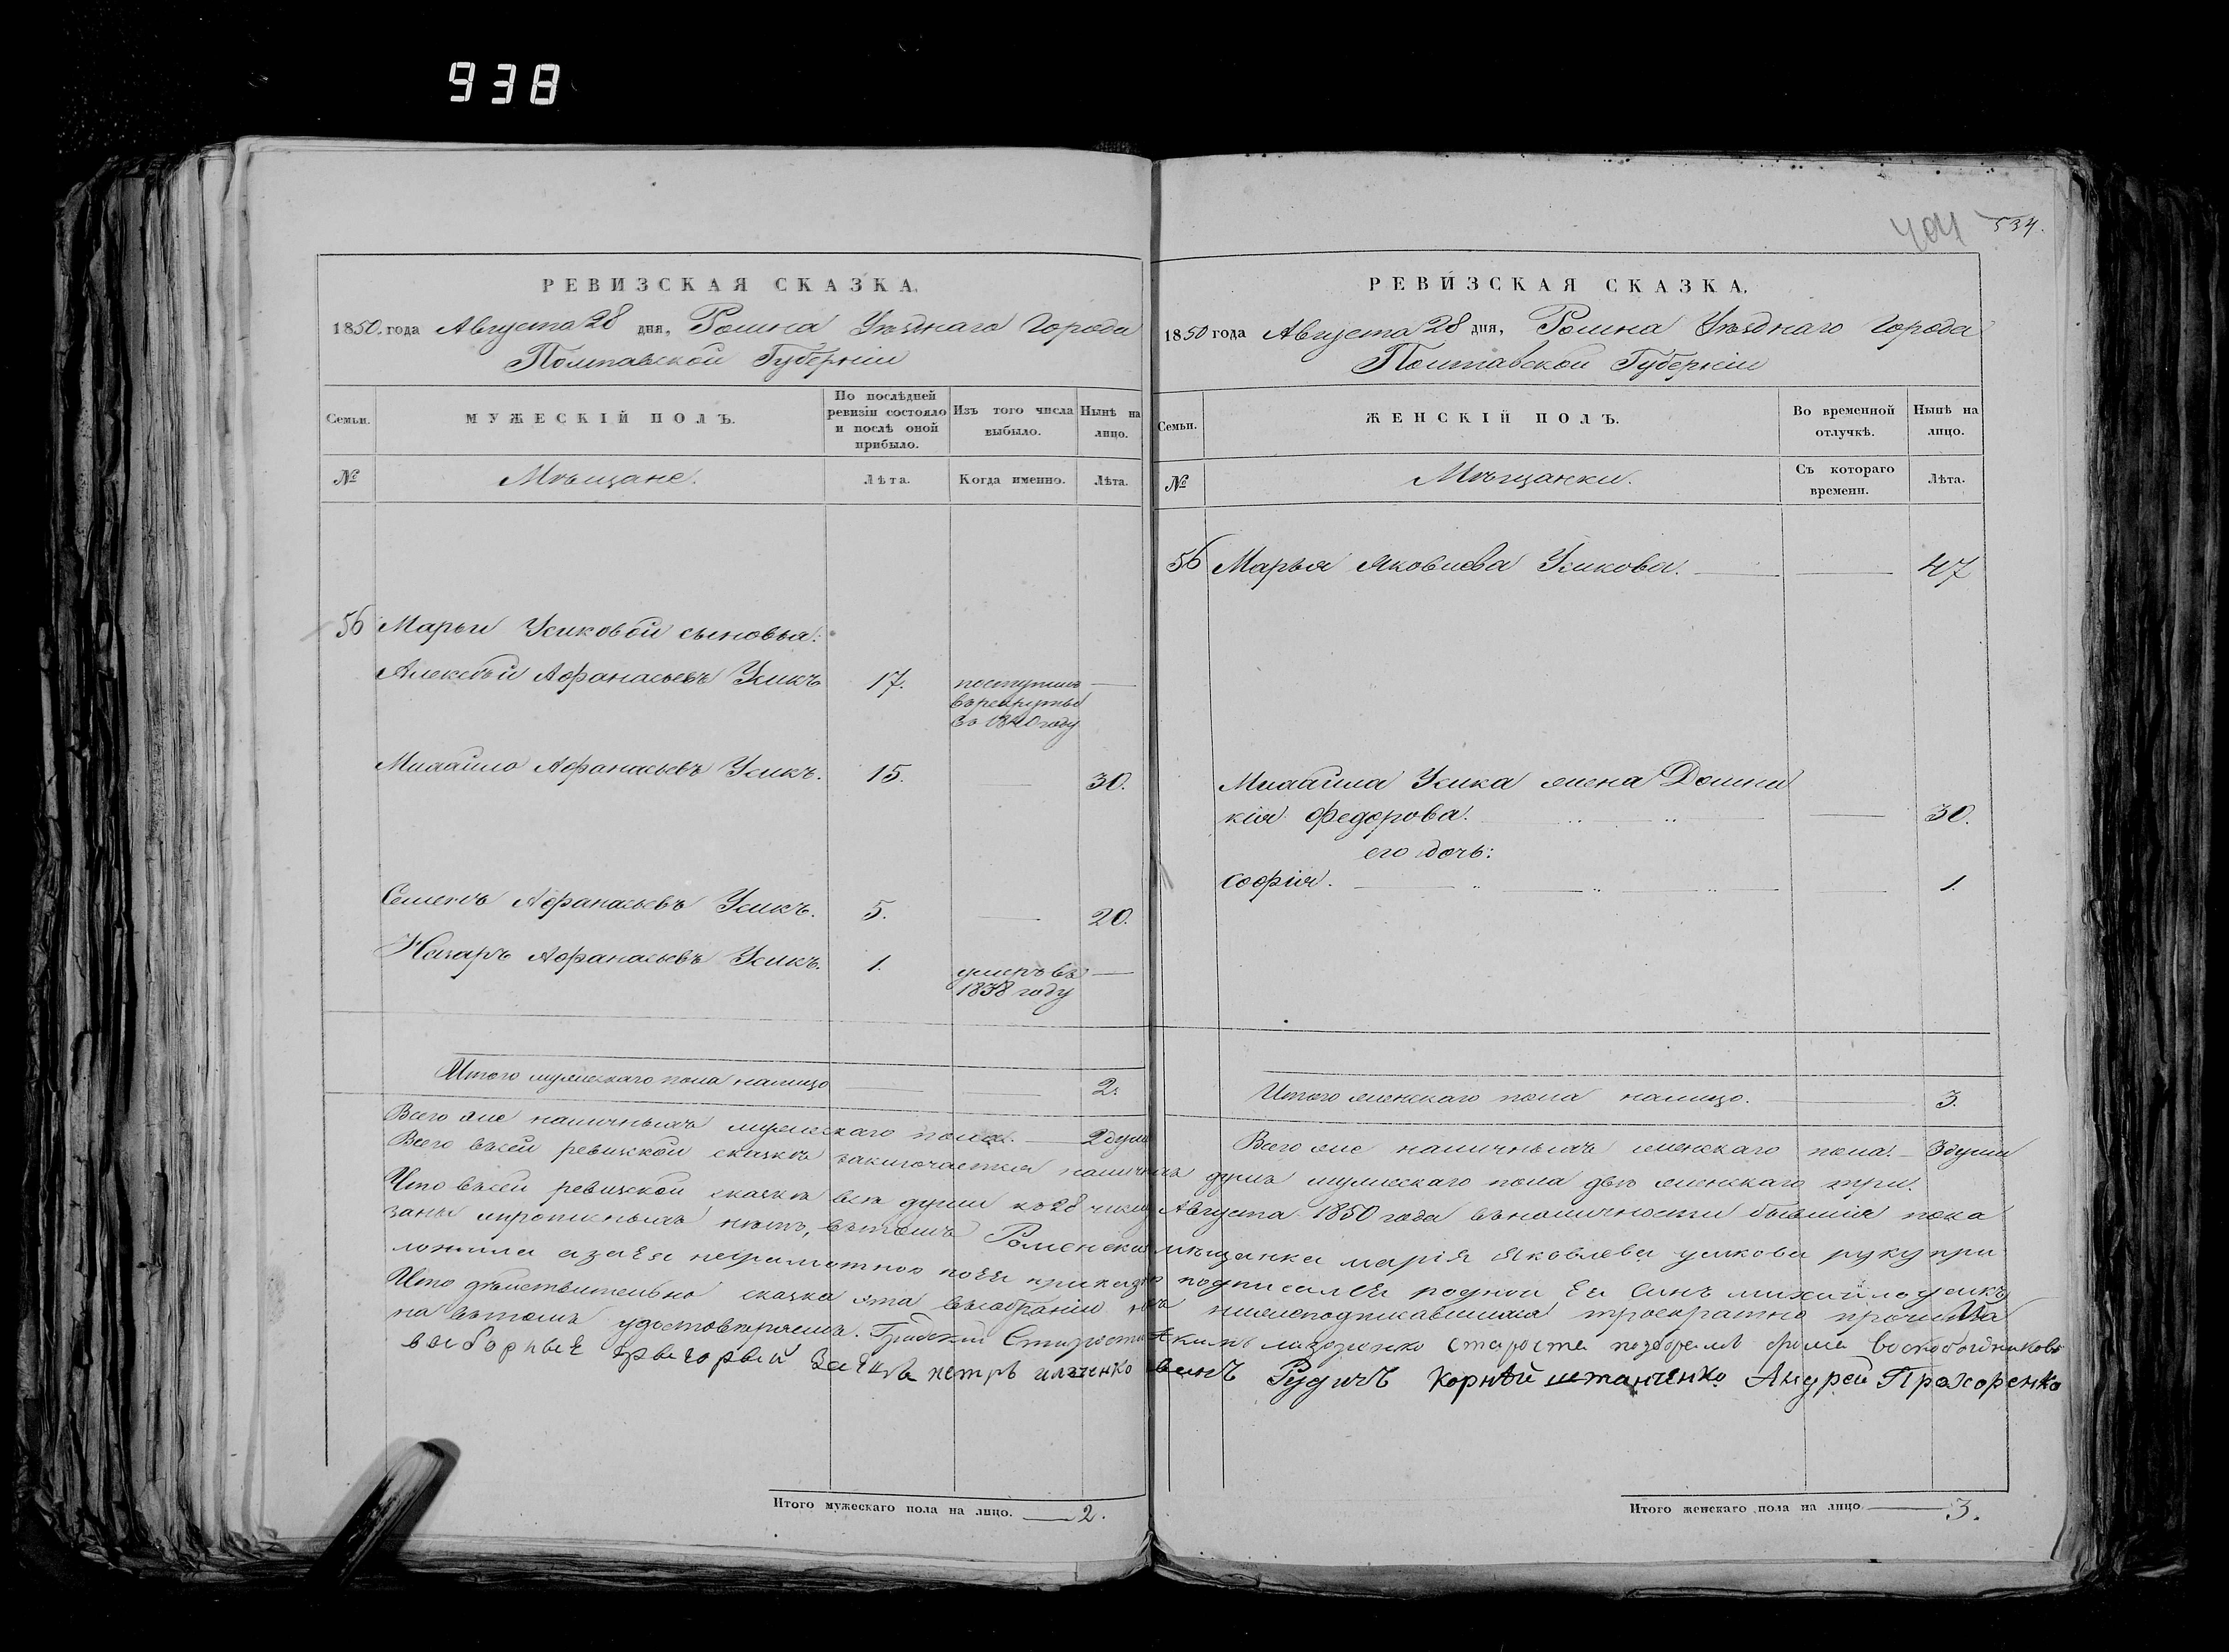 938
404 534.
РЕВИЗСКАЯ СКАЗКА.
1850. года Августа 28 дня, Ромна Уѣзднаго Города
Полтавской Губерніи
Семьи.
МУЖЕСКІЙ ПОЛЪ.
По послѣдней ревизіи состояло и послѣ оной прибыло.
Изъ того числа выбыло.
Нынѣ на лицо.
№
Мѣщане.
Лѣта.
Когда именно.
Лѣта.
56 Марьи Усиковой сыновья:
Алексѣй Афанасьевъ Усикъ 17. поступилъ
въ рекруты
въ 1840 году
Михайло Афанасьевъ Усикъ. 15. 30.
Семенъ Афанасьевъ Усикъ. 5. 20.
Назаръ Афанасьевъ Усикъ. 1. умеръ въ
1838 году
Итого мужескаго пола налицо 2.
Всего же наличныхъ мужескаго пола. 2 души
РЕВИЗСКАЯ СКАЗКА.
1850 года Августа 28 дня, Ромна Уѣзднаго Города
Полтавской Губерніи
Семьи.
ЖЕНСКІЙ ПОЛЪ.
Во временной отлучкѣ.
Нынѣ на лицо.
№
Мѣщанки.
Съ котораго времени.
Лѣта.
56 Марья Яковлева Усикова. 47
Михайла Усика жена Домни
кія Федорова. 30.
его дочь:
Софія. 1.
Итого женскаго пола налицо. 3.
Всего же наличныхъ женскаго пола. 3 души
Всего въ сей ревизской сказкѣ заключается наличныхъ душъ мужескаго пола двѣ женскаго три.
Что въ сей ревизской сказкѣ всѣ души къ 28 числу Августа 1850 года въ наличности бывшія пока
заны и прописныхъ нѣтъ, въ томъ Роменская мѣщанка марія Яковлева усикова руку при
ложила а за нея неграмотною по ея приказу подписался родной Ея Синъ михайло усикъ
Что дѣйствительно сказка эта въ собраніи насъ нижеподписавшихся троекратно прочита
на въ томъ удостовѣряемъ. Градский Староста Якимъ лазоренко Староста
выборные григорый заЕцъ петръ ильченко Рудичъ Корнѣй Андрей Прохоренко
Итого мужескаго пола на лицо. 2.
Итого женскаго пола на лицо 3.